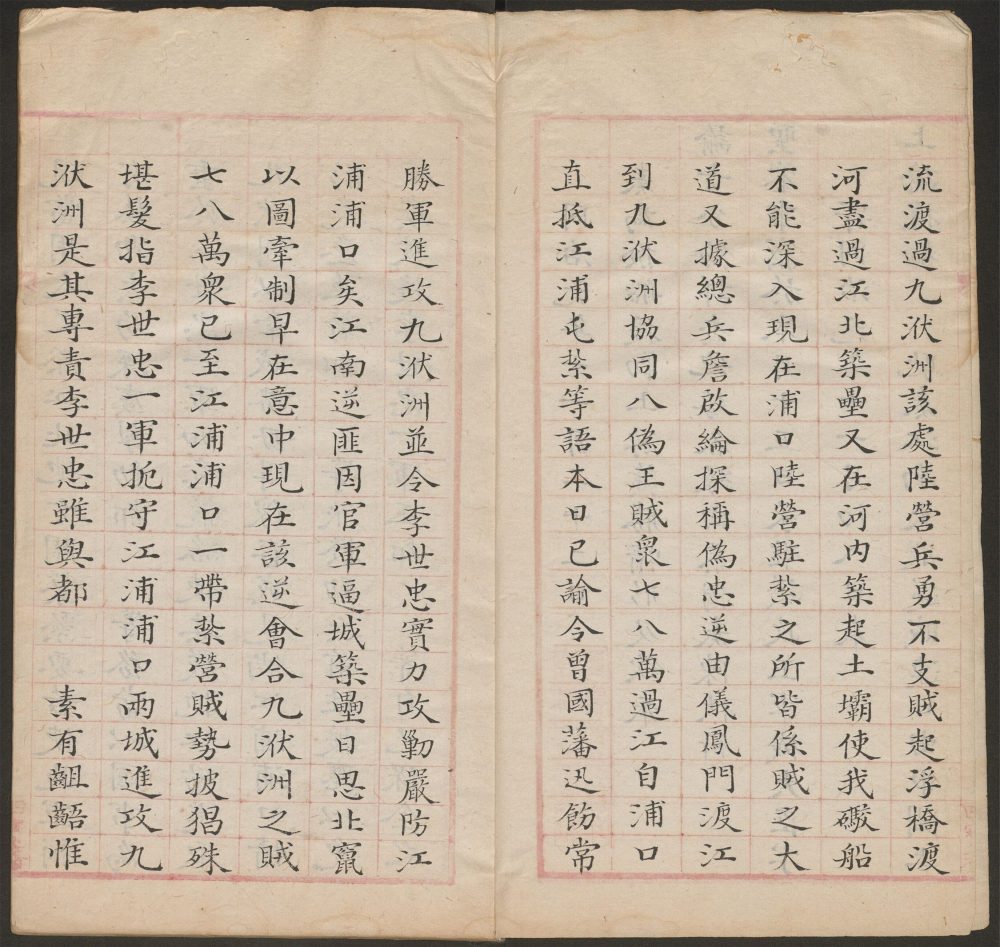 流渡過九洑洲該處陸營兵勇不支賊起浮橋渡
河盡過江北築壘又在河內築起土壩使我礮船
不能深入現在浦口陸營駐紮之所皆係賊之大
道又據總兵詹啟綸探稱偽忠逆由儀鳳門渡江
到九洑洲協同八偽王賊衆七八萬過江自浦口
直抵江浦屯紮等語本日已諭令曾國藩迅飭常
勝軍進攻九洑洲並令李世忠實力攻勦嚴防江
浦浦口矣江南逆匪因官軍逼城築壘日思北竄
以圖牽制早在意中現在該逆會合九洑洲之賊
七八萬衆已至江浦浦口一帶紮營賊勢披猖殊
堪髮指李世忠一軍扼守江浦浦口兩城進攻九
洑洲是其專責李世忠雖與都　素有齟齬惟